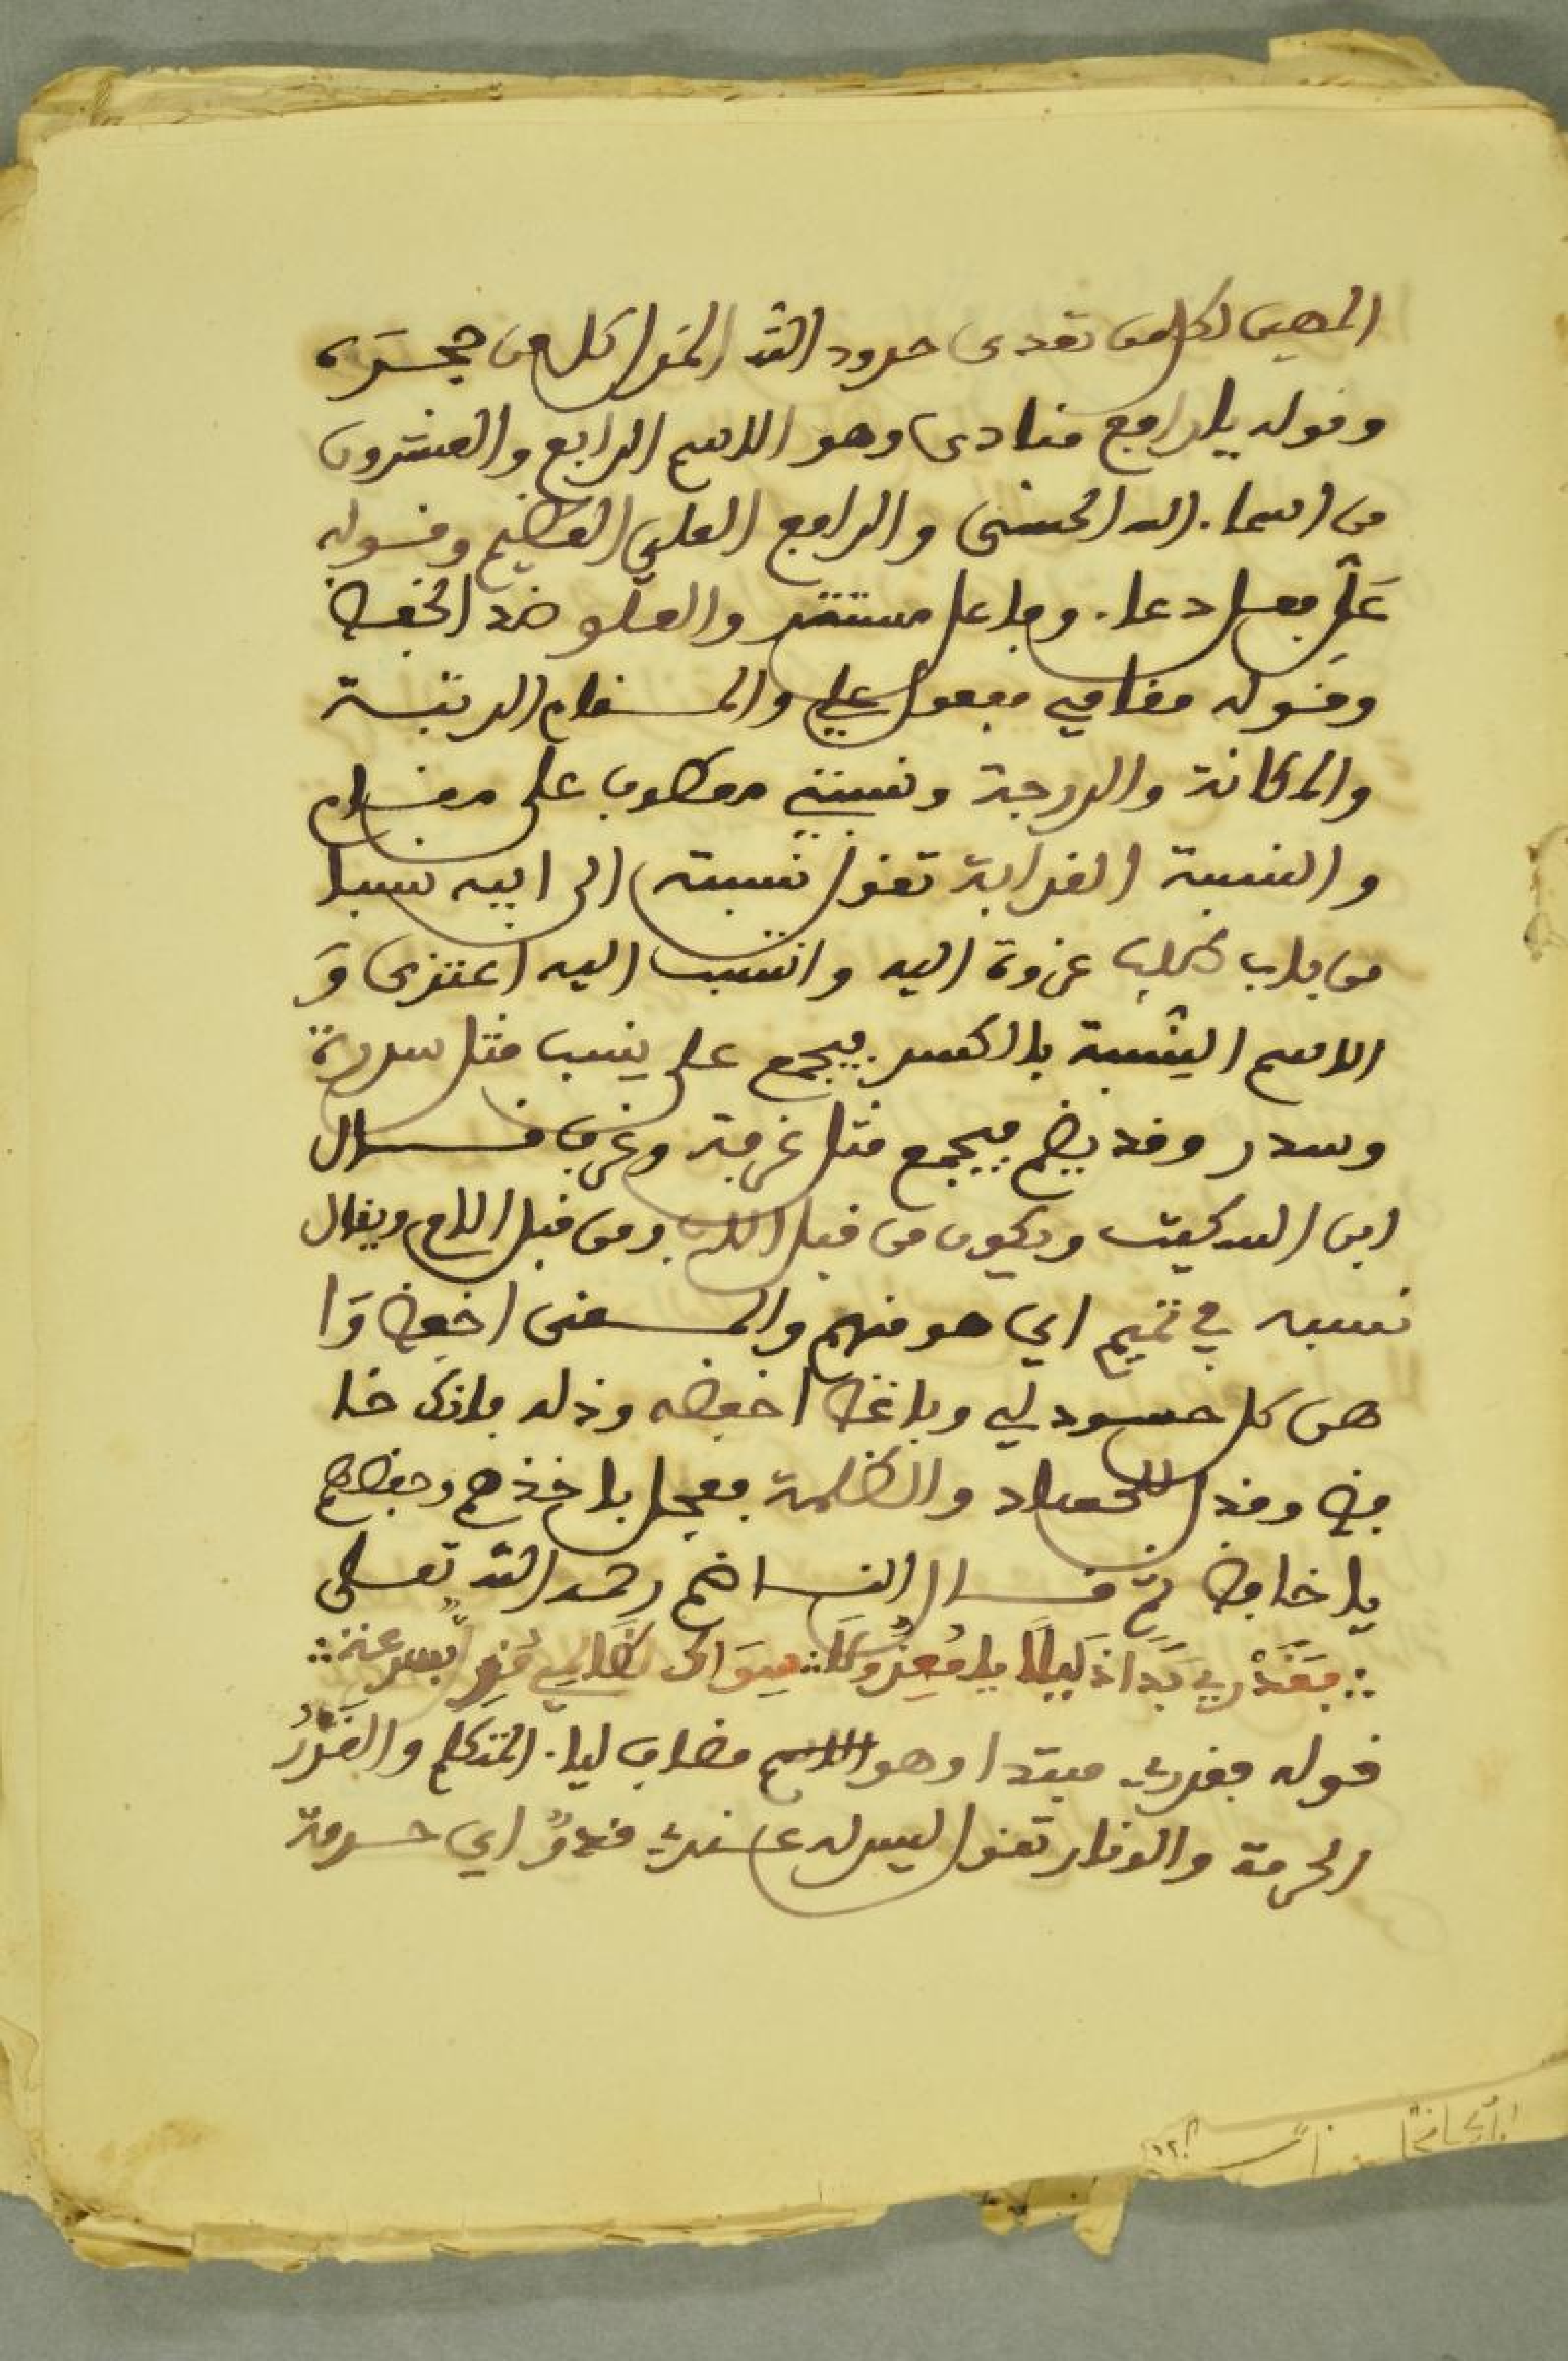 المهين لكل من تعدى حدود الله المذل كل من
وقوله يا رافع منادى وهو الاسم الرابع والعشرون
من اسماء الله الحسنى والرافع العلي العظيم وقوله
عَلِّ فعل دعاء وفاعل مستتر والعلو ضد الخفض
وقوله مقامي مفعول علي والمقام الرتبة
والمكانة والدرجة ونسبتي معطوف على مقام
والنسبة القرابة تقول نسبته الى ابيه نسبا
من باب طلب عزوة اليه وانتسب اليه اعتزى وَ
الاسم النِّسبة بالكسر فيجمع على نسب مثل سدرة
وسدر وقد يضم فيجمع مثل غرفة وغرف قال
ابن السكيت ويكون من قبل الاب ومن قبل الام ويقال
نسبه في تميم اي هو منهم والمعنى اخفض وَا
هن كل حسود لي وباغض اخفضه وذله فانك خا
فض ومذل للحساد والظلمة فعجل باخذهم وخفضهم
يا خافض ثم قال الناضم رحمه الله تعلى
فقَدْرِي بَدَا ذَلِيلًا يا مُعِزُّ وَلَا سِوَاكَ
قوله فقدري مبتدا وهو الاسم مضاف لياء المتكلم والقَدْرُ
الحرمة والوقار تقول ليس له عندي قدرٌ اي حرمة